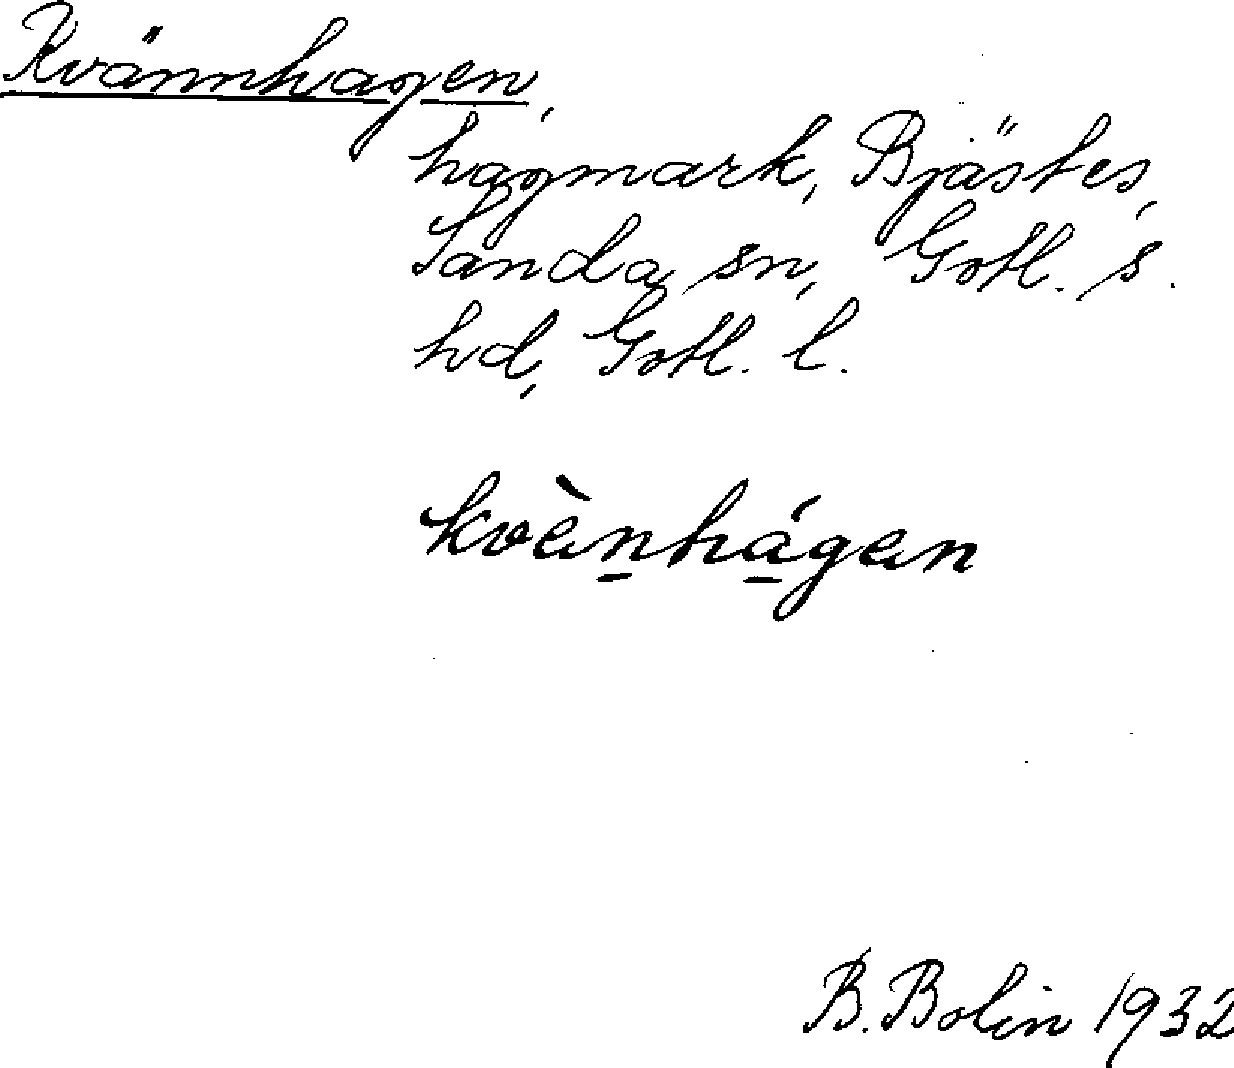 Kvännhagen,
hagmark, Bjästes,
Sanda sn, Gotl. s.
hd, Gotl. l.
kvènhágen
B. Bolin 1932